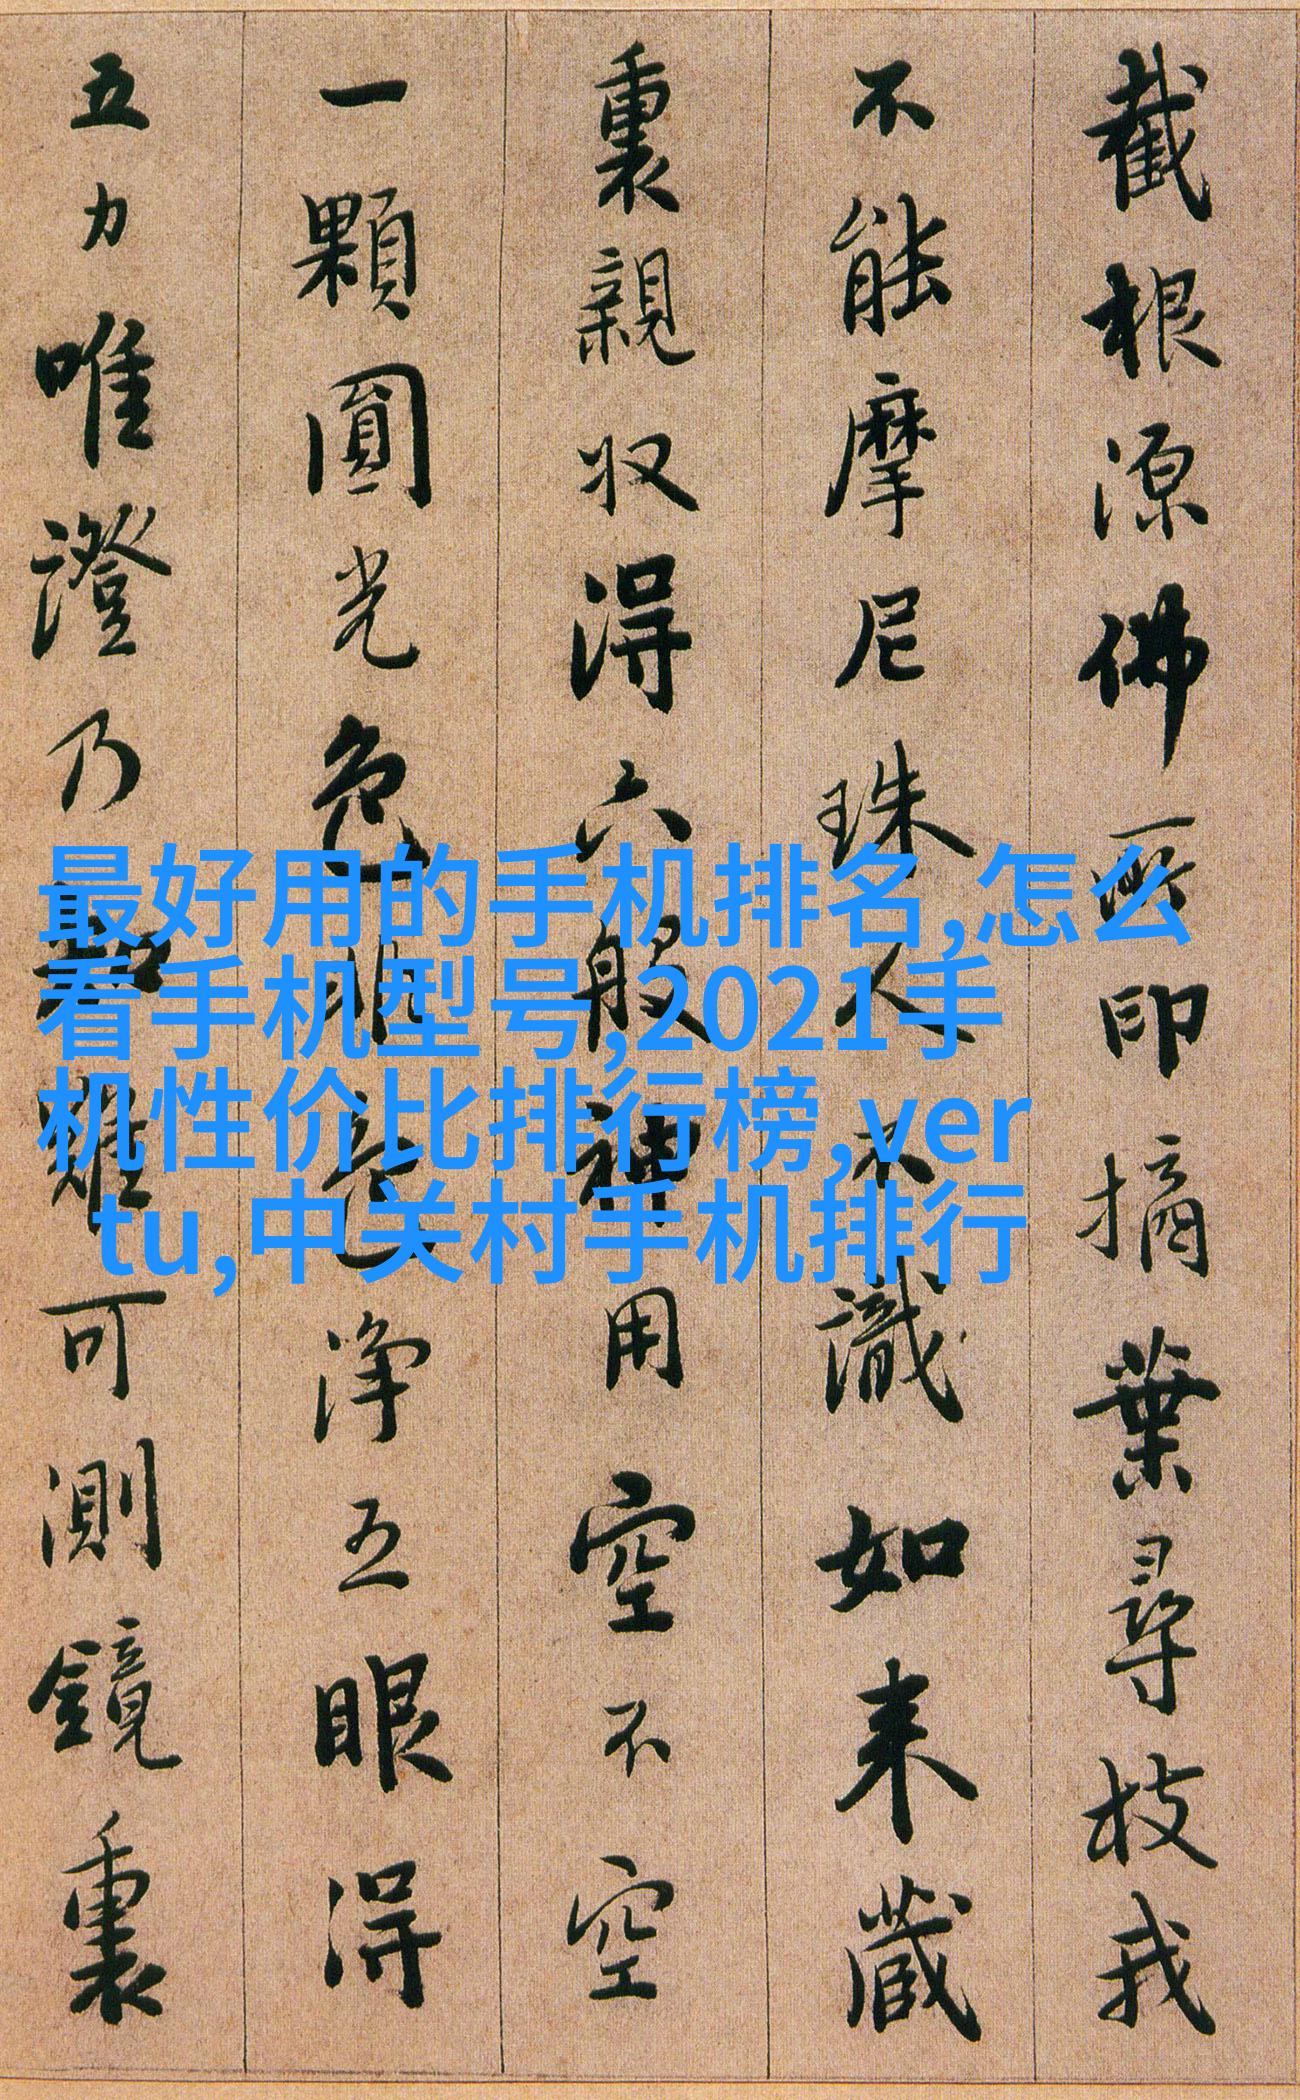 截根源佛所印摘葉尋枝我
不能摩尼珠人不識如来蔵
裏親収得六般神用空不空
一顆圓光色非色淨五眼得
五力唯證乃知難可測鏡裏
最好用的手机排名,怎么
看手机型号,2021手
机性价比排行榜,ver
tu,中关村手机排行